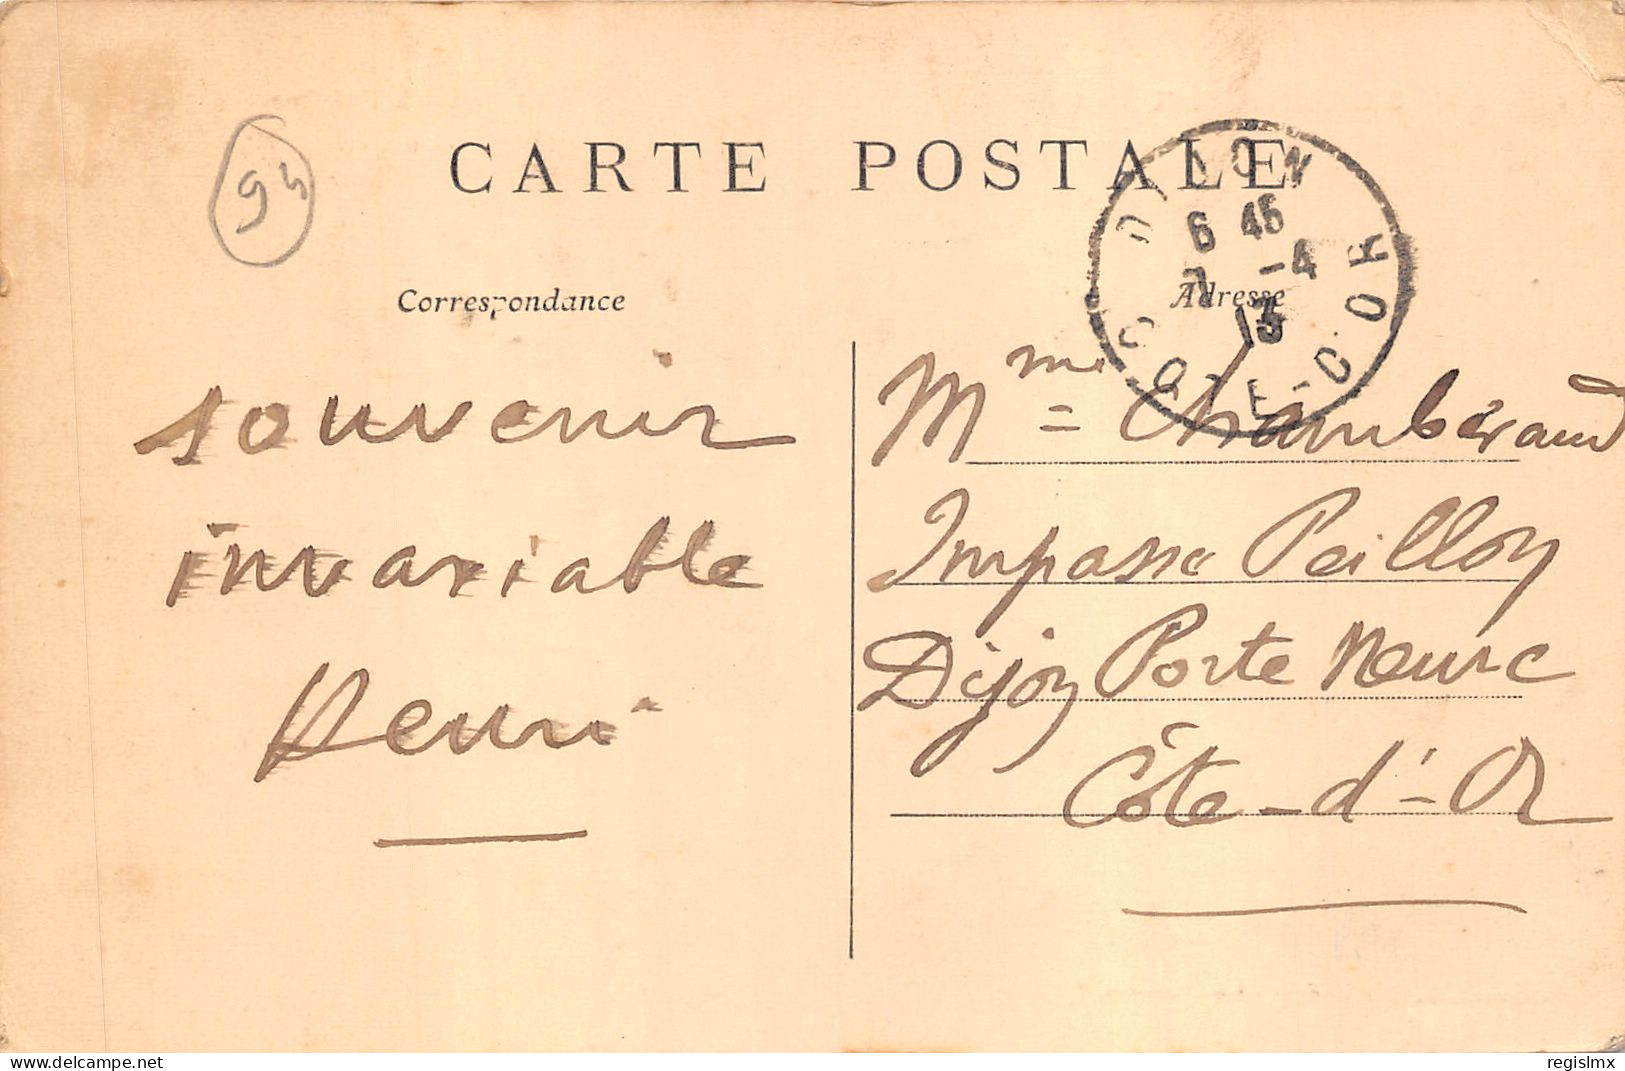 95
CARTE POSTALE
DIJON
6 45
7 -4
13
COTE-D'OR
Correspondance
Adresse
souvenir
invariable
Henri
Mme = Chamberaud
Impasse Peilloy
Dijon Porte Neuve
Côte-d'-Or
delcampe.net
regislmx